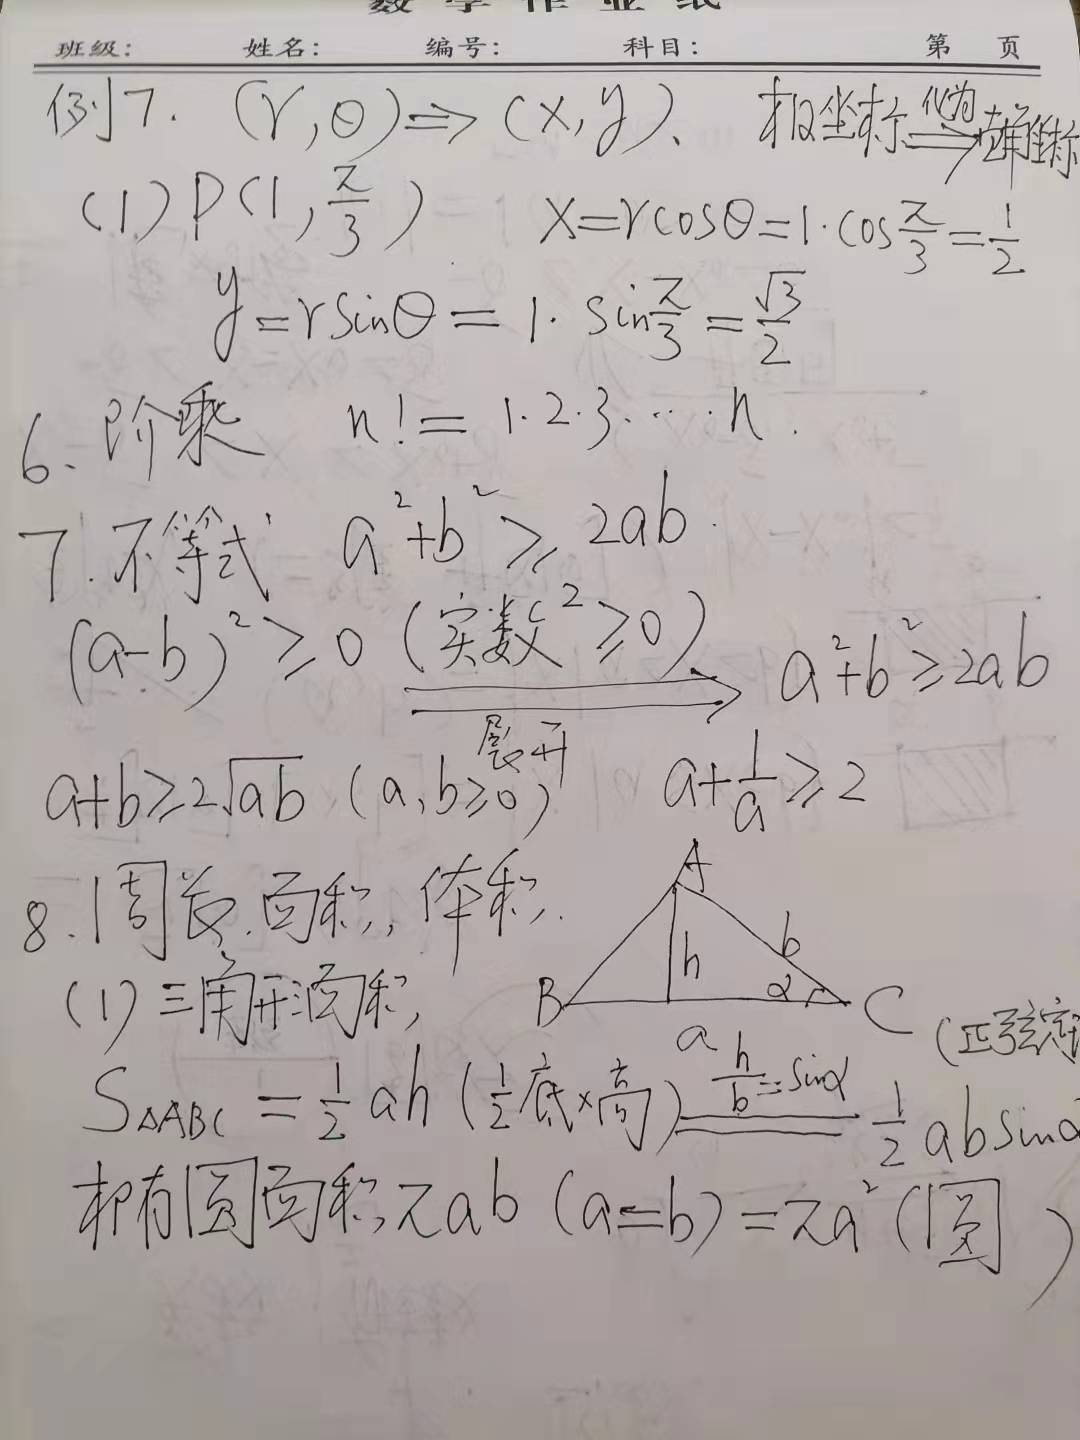 数学作业纸
班级: 姓名: 编号: 科目: 第 页
例7. (r,θ)⇒(x,y)、 极坐标 化为⇒ 直角坐标
(1) P(1,π/3) x=rcosθ=1·cosπ/3=1/2
y=rsinθ=1·sinπ/3=√3/2
6、阶乘 n!=1·2·3·…·n.
7.不等式 a²+b²≥2ab.
(a-b)²≥0 (实数²≥0) 展开⇒ a²+b²≥2ab
a+b≥2√ab (a,b≥0) a+1/a≥2
8.周长、面积,体积.
A
b
h
α
B
C
a
(1)三角形面积, (正弦定
S△ABC=1/2ah(1/2底×高) h/b=sinα 1/2absinα
椭圆面积πab(a=b)=πa²(圆)